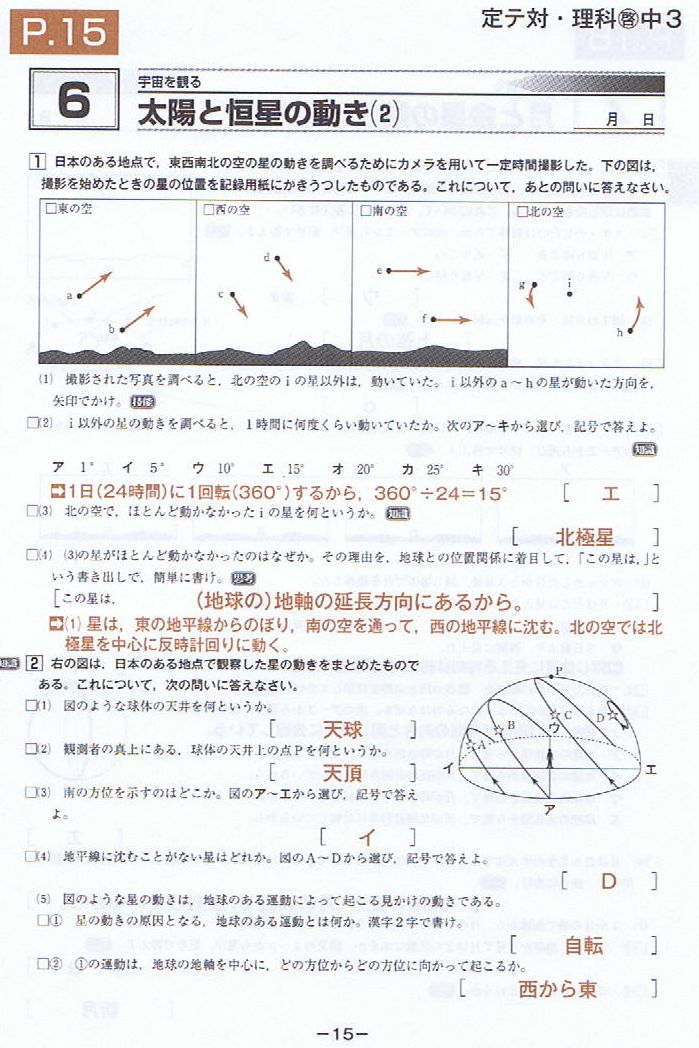 P.15
定テ対・理科㊗中3
6
宇宙を観る
太陽と恒星の動き(2)
月 日
1 日本のある地点で,東西南北の空の星の動きを調べるためにカメラを用いて一定時間撮影した。下の図は,
撮影を始めたときの星の位置を記録用紙にかきうつしたものである。これについて,あとの問いに答えなさい。
□東の空 □西の空 □南の空 □北の空
a b c d e f g i h
(1) 撮影された写真を調べると,北の空のiの星以外は,動いていた。i以外のa~hの星が動いた方向を,
矢印でかけ。技能
□(2) i以外の星の動きを調べると,1時間に何度くらい動いていたか。次のア~キから選び,記号で答えよ。
知識
ア 1° イ 5° ウ 10° エ 15° オ 20° カ 25° キ 30°
➡1日(24時間)に1回転(360°)するから,360°÷24=15° [ エ ]
□(3) 北の空で,ほとんど動かなかったiの星を何というか。知識
[ 北極星 ]
□(4) (3)の星がほとんど動かなかったのはなぜか。その理由を,地球との位置関係に着目して,「この星は,」と
いう書き出しで,簡単に書け。思考
[この星は, (地球の)地軸の延長方向にあるから。 ]
➡(1) 星は,東の地平線からのぼり,南の空を通って,西の地平線に沈む。北の空では北
極星を中心に反時計回りに動く。
知識 2 右の図は,日本のある地点で観察した星の動きをまとめたもので
ある。これについて,次の問いに答えなさい。
□(1) 図のような球体の天井を何というか。
[ 天球 ]
□(2) 観測者の真上にある,球体の天井上の点Pを何というか。
[ 天頂 ]
□(3) 南の方位を示すのはどこか。図のア~エから選び,記号で答え
よ。
[ イ ]
P
A B C D
ア イ ウ エ
□(4) 地平線に沈むことがない星はどれか。図のA~Dから選び,記号で答えよ。
[ D ]
(5) 図のような星の動きは,地球のある運動によって起こる見かけの動きである。
□① 星の動きの原因となる,地球のある運動とは何か。漢字2字で書け。
[ 自転 ]
□② ①の運動は,地球の地軸を中心に,どの方位からどの方位に向かって起こるか。
[ 西から東 ]
-15-